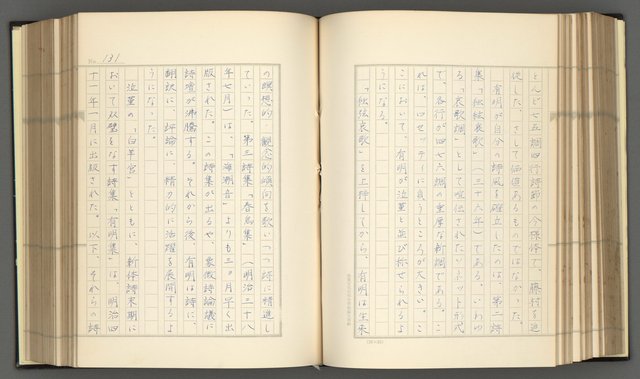 とんど七五調四行詩節の今様体で、藤村を追
従した、さして価値あるものではなかった。
　有明が自分の詩風を確立したのは、第二詩
集「独絃哀歌」（三十六年）である。いわゆ
る「哀歌調」として喧伝されたソネット形式
で、各行が四七六調の重厚な新調である。こ
れは、ロセッティに負うところが大きい。こ
こにおいて、有明が泣菫と並び称せられるよ
うになる。
「独絃哀歌」を上梓してから、有明は生来
No. 131
の瞑想的・観念的傾向を歌いつつ詩に精進し
ていった。第三詩集「春鳥集」（明治三十八
年七月）は、「海潮音」よりも三ヵ月早く出
版された。この詩集が出るや、象徴詩論議に
詩壇が沸騰する。それから後、有明は詩に、
翻訳に、評論に、精力的に活躍を展開するよ
うになった。
　泣菫の「白羊宮」とともに、新体詩末期に
おいて双璧をなす詩集「有明集」は、明治四
十一年一月に出版された。以下、それらの詩